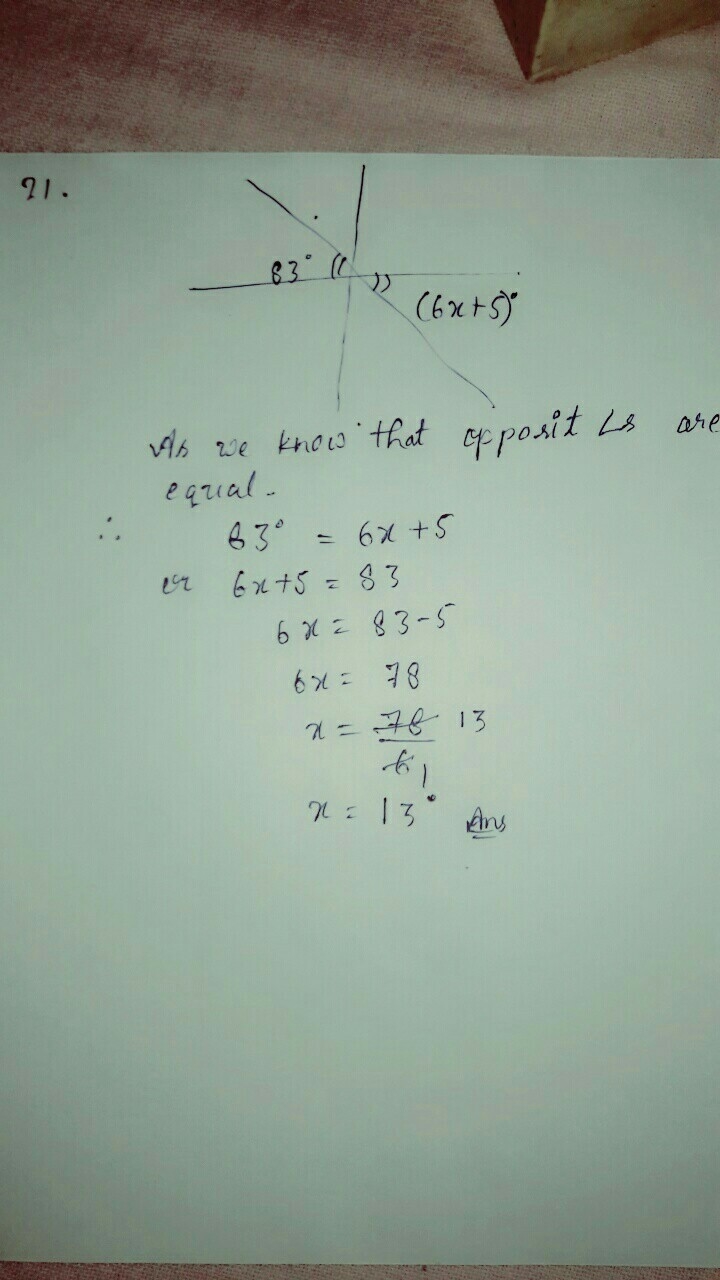 21.
83° (6x+5)°
As we know that opposit ∠s are
equal.
∴ 83° = 6x+5
or 6x+5 = 83
6x = 83-5
6x = 78
x = 78 13
6 1
x = 13° Ans